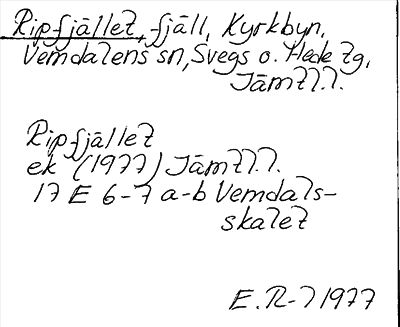 Ripfjället, fjäll, Kyrkbyn,
Vemdalens sn, Svegs o. Hede tg,
Jämtl.l.
Ripfjället
ek (1977) Jämtl.l.
17 E 6-7 a-b Vemdals-
skalet
E.R-l 1977